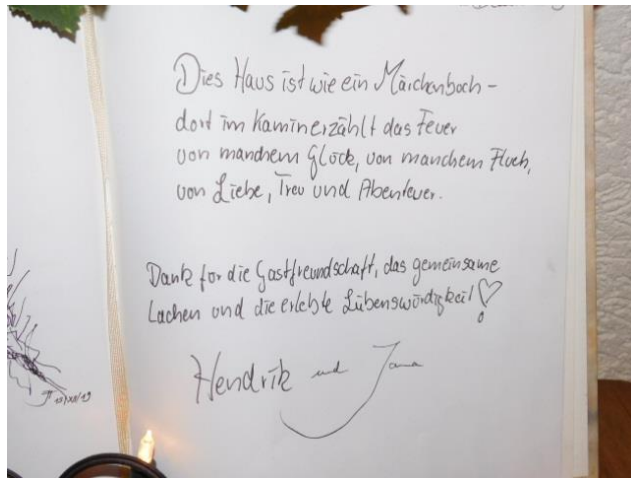 Dies Haus ist wie ein Märchenbuch -
dort im Kamin erzählt das Feuer
von manchem Glück, von manchem Fluch,
von Liebe, Treu und Abenteuer.
Dank für die Gastfreundschaft, das gemeinsame
Lachen und die erlebte Lübenswürdigkeit!
Hendrik und Jana